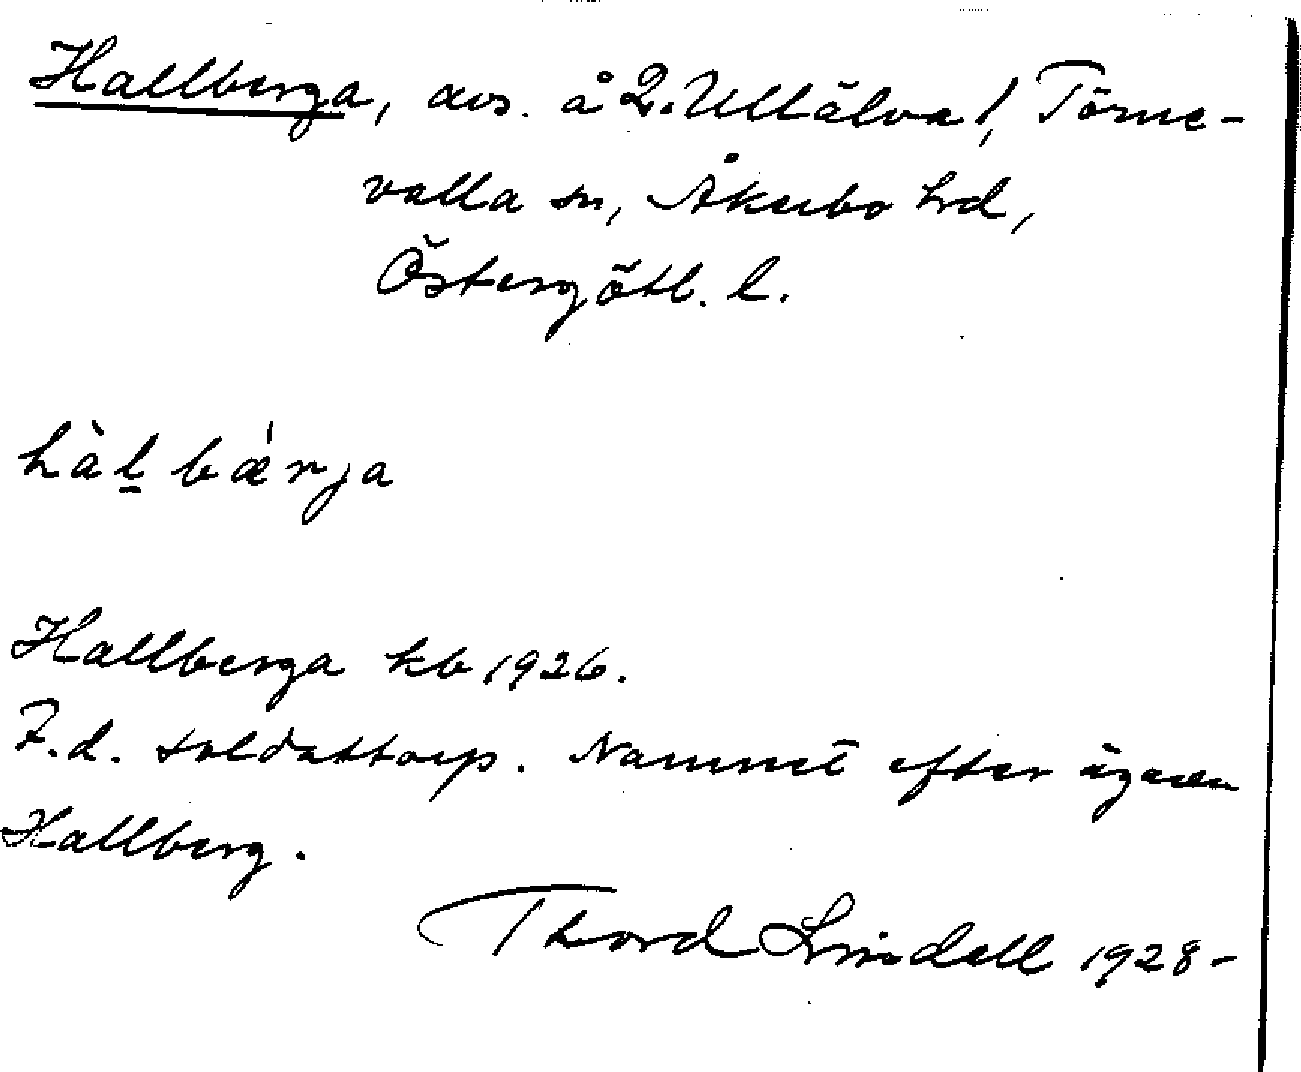 Hallberga, avs. å 2. Ullälva!, Törne-
valla sn, Åkerbo hrd,
Östergötl. l.
hàl̲ bǽrja
Hallberga kb 1926.
F.d. soldattorp. Namnet efter ägaren
Hallberg.
Thord Lindell 1928-